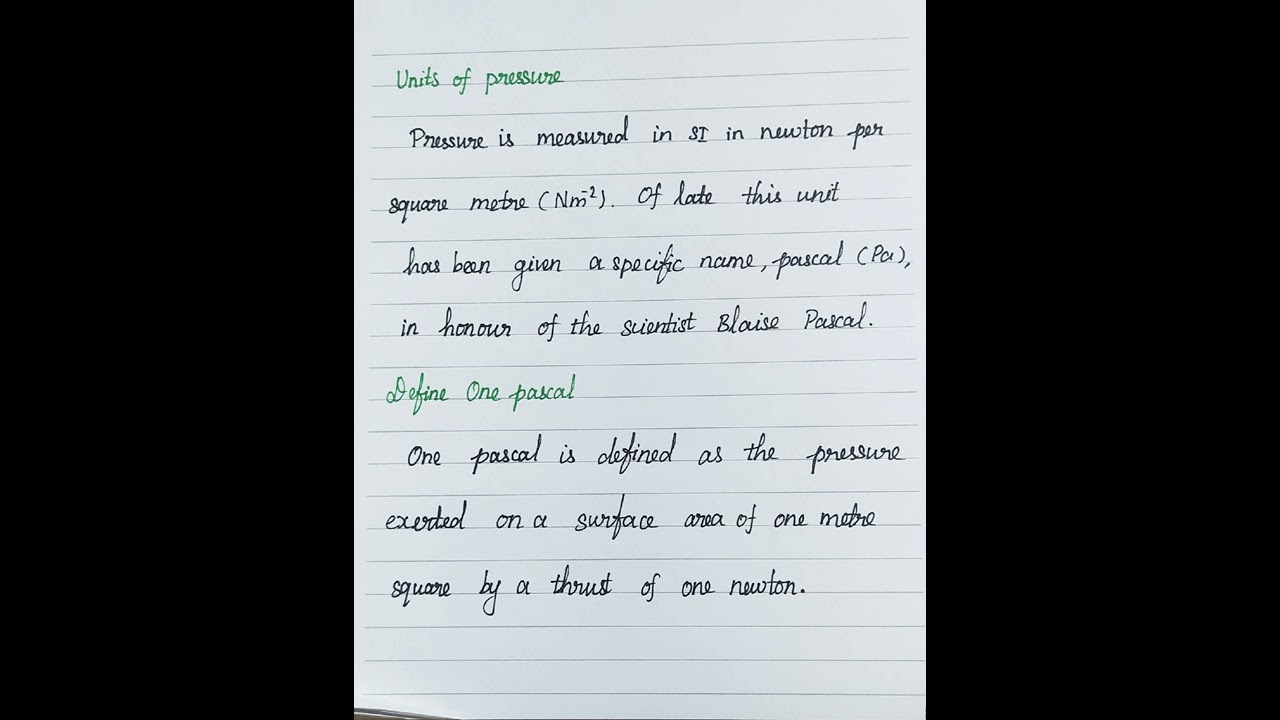 Units of pressure
Pressure is measured in SI in newton per
square metre (Nm⁻²). Of late this unit
has been given a specific name, pascal (Pa),
in honour of the scientist Blaise Pascal.
Define One pascal
One pascal is defined as the pressure
exerted on a surface area of one metre
square by a thrust of one newton.